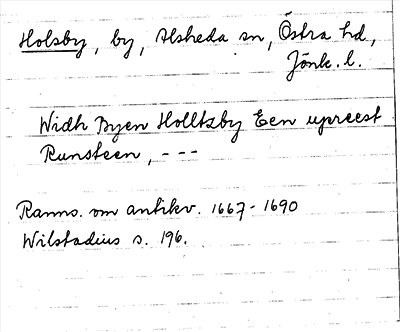 Holsby, by, Alsheda sn, Östra hd,
Jönk. l.
Widh Byen Holltzby Een upreest
Runsteen, - - -
Ranns. om antikv. 1667-1690
Wilstadius s. 196.